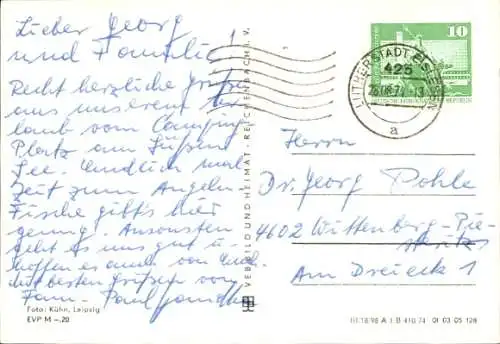 Lieber Georg
und Familie!
Recht herzliche Grüße
aus unserem Ur-
laub vom Camping
Platz am Süßen
See. Endlich mal
Zeit zum Angeln.
Fische gibt's hier
genug. Ansonsten
geht es uns gut u.
hoffen es auch von Euch.
Mit besten Grüßen von
Fam. Paul
Foto: Kühn, Leipzig
EVP M -.20
VEB BILD UND HEIMAT · REICHENBACH I. V.
10
LUTHERSTADT EISLEBEN
425
a
Herrn
Dr. Georg Pohle
4602 Wittenberg-Pie-
steritz
Am Dreieck 1
A 1 B 410/74 01 03 05 128